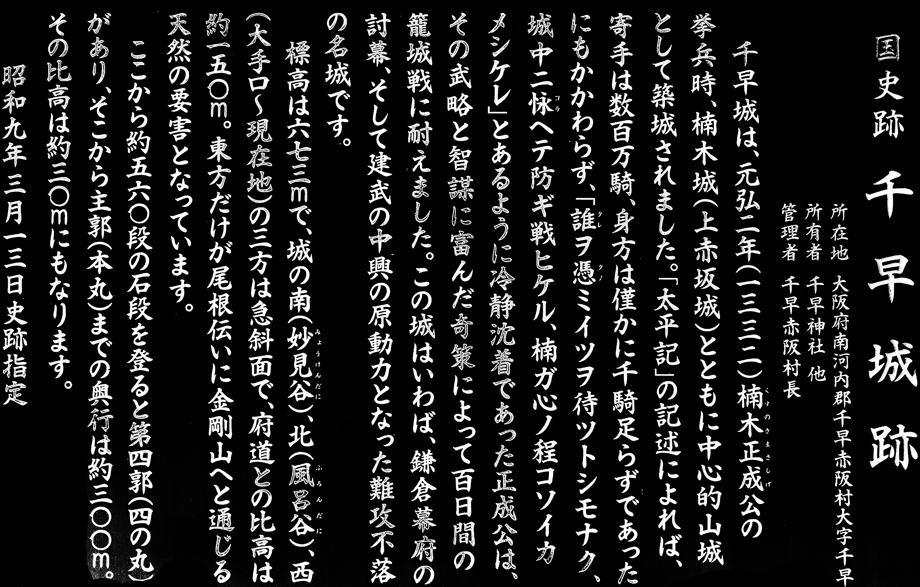 国史跡 千早城跡
所在地 大阪府南河内郡千早赤阪村大字千早
所有者 千早神社 他
管理者 千早赤阪村長
千早城は、元弘二年(一三三二)楠木正成公の
挙兵時、楠木城(上赤坂城)とともに中心的山城
として築城されました。「太平記」の記述によれば、
寄手は数百万騎、身方は僅かに千騎足らずであった
にもかかわらず、「誰ヲ憑ミイツヲ待ツトシモナク、
城中ニ怺ヘテ防ギ戦ヒケル、楠ガ心ノ程コソイカ
メシケレ」とあるように冷静沈着であった正成公は、
その武略と智謀に富んだ奇策によって百日間の
籠城戦に耐えました。この城はいわば、鎌倉幕府の
討幕、そして建武の中興の原動力となった難攻不落
の名城です。
標高は六七三mで、城の南(妙見谷)、北(風呂谷)、西
(大手口～現在地)の三方は急斜面で、府道との比高は
約一五〇m。東方だけが尾根伝いに金剛山へと通じる
天然の要害となっています。
ここから約五六〇段の石段を登ると第四郭(四の丸)
があり、そこから主郭(本丸)までの奥行は約三〇〇m。
その比高は約三〇mにもなります。
昭和九年三月一三日史跡指定